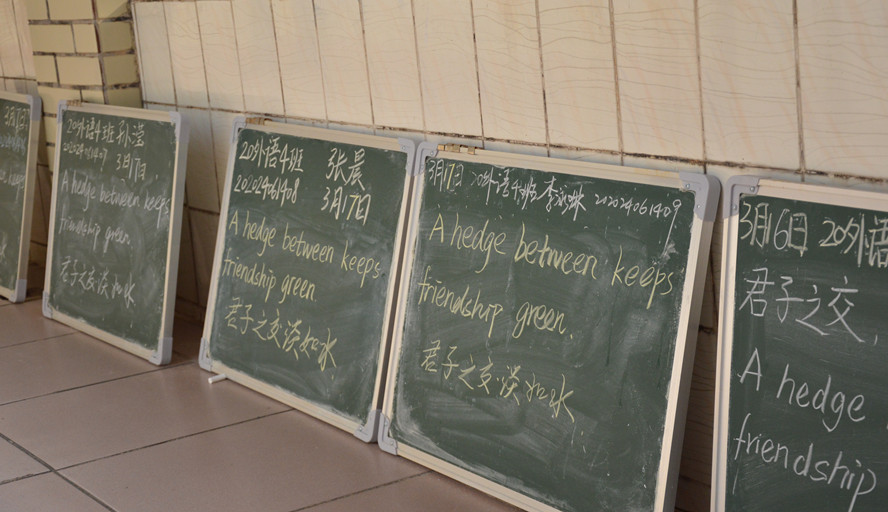 3月17日
keeps
20外语4班 孙滢
202024061407 3月17日
A hedge between keeps
friendship green
君子之交淡如水
20外语4班 张晨
202024061408 3月17日
A hedge between keeps
friendship green.
君子之交淡如水
3月17日 20外语4班 李 202024061409
A hedge between keeps
friendship green.
君子之交淡如水
3月16日 20外语
君子之交
A hedge
friendship